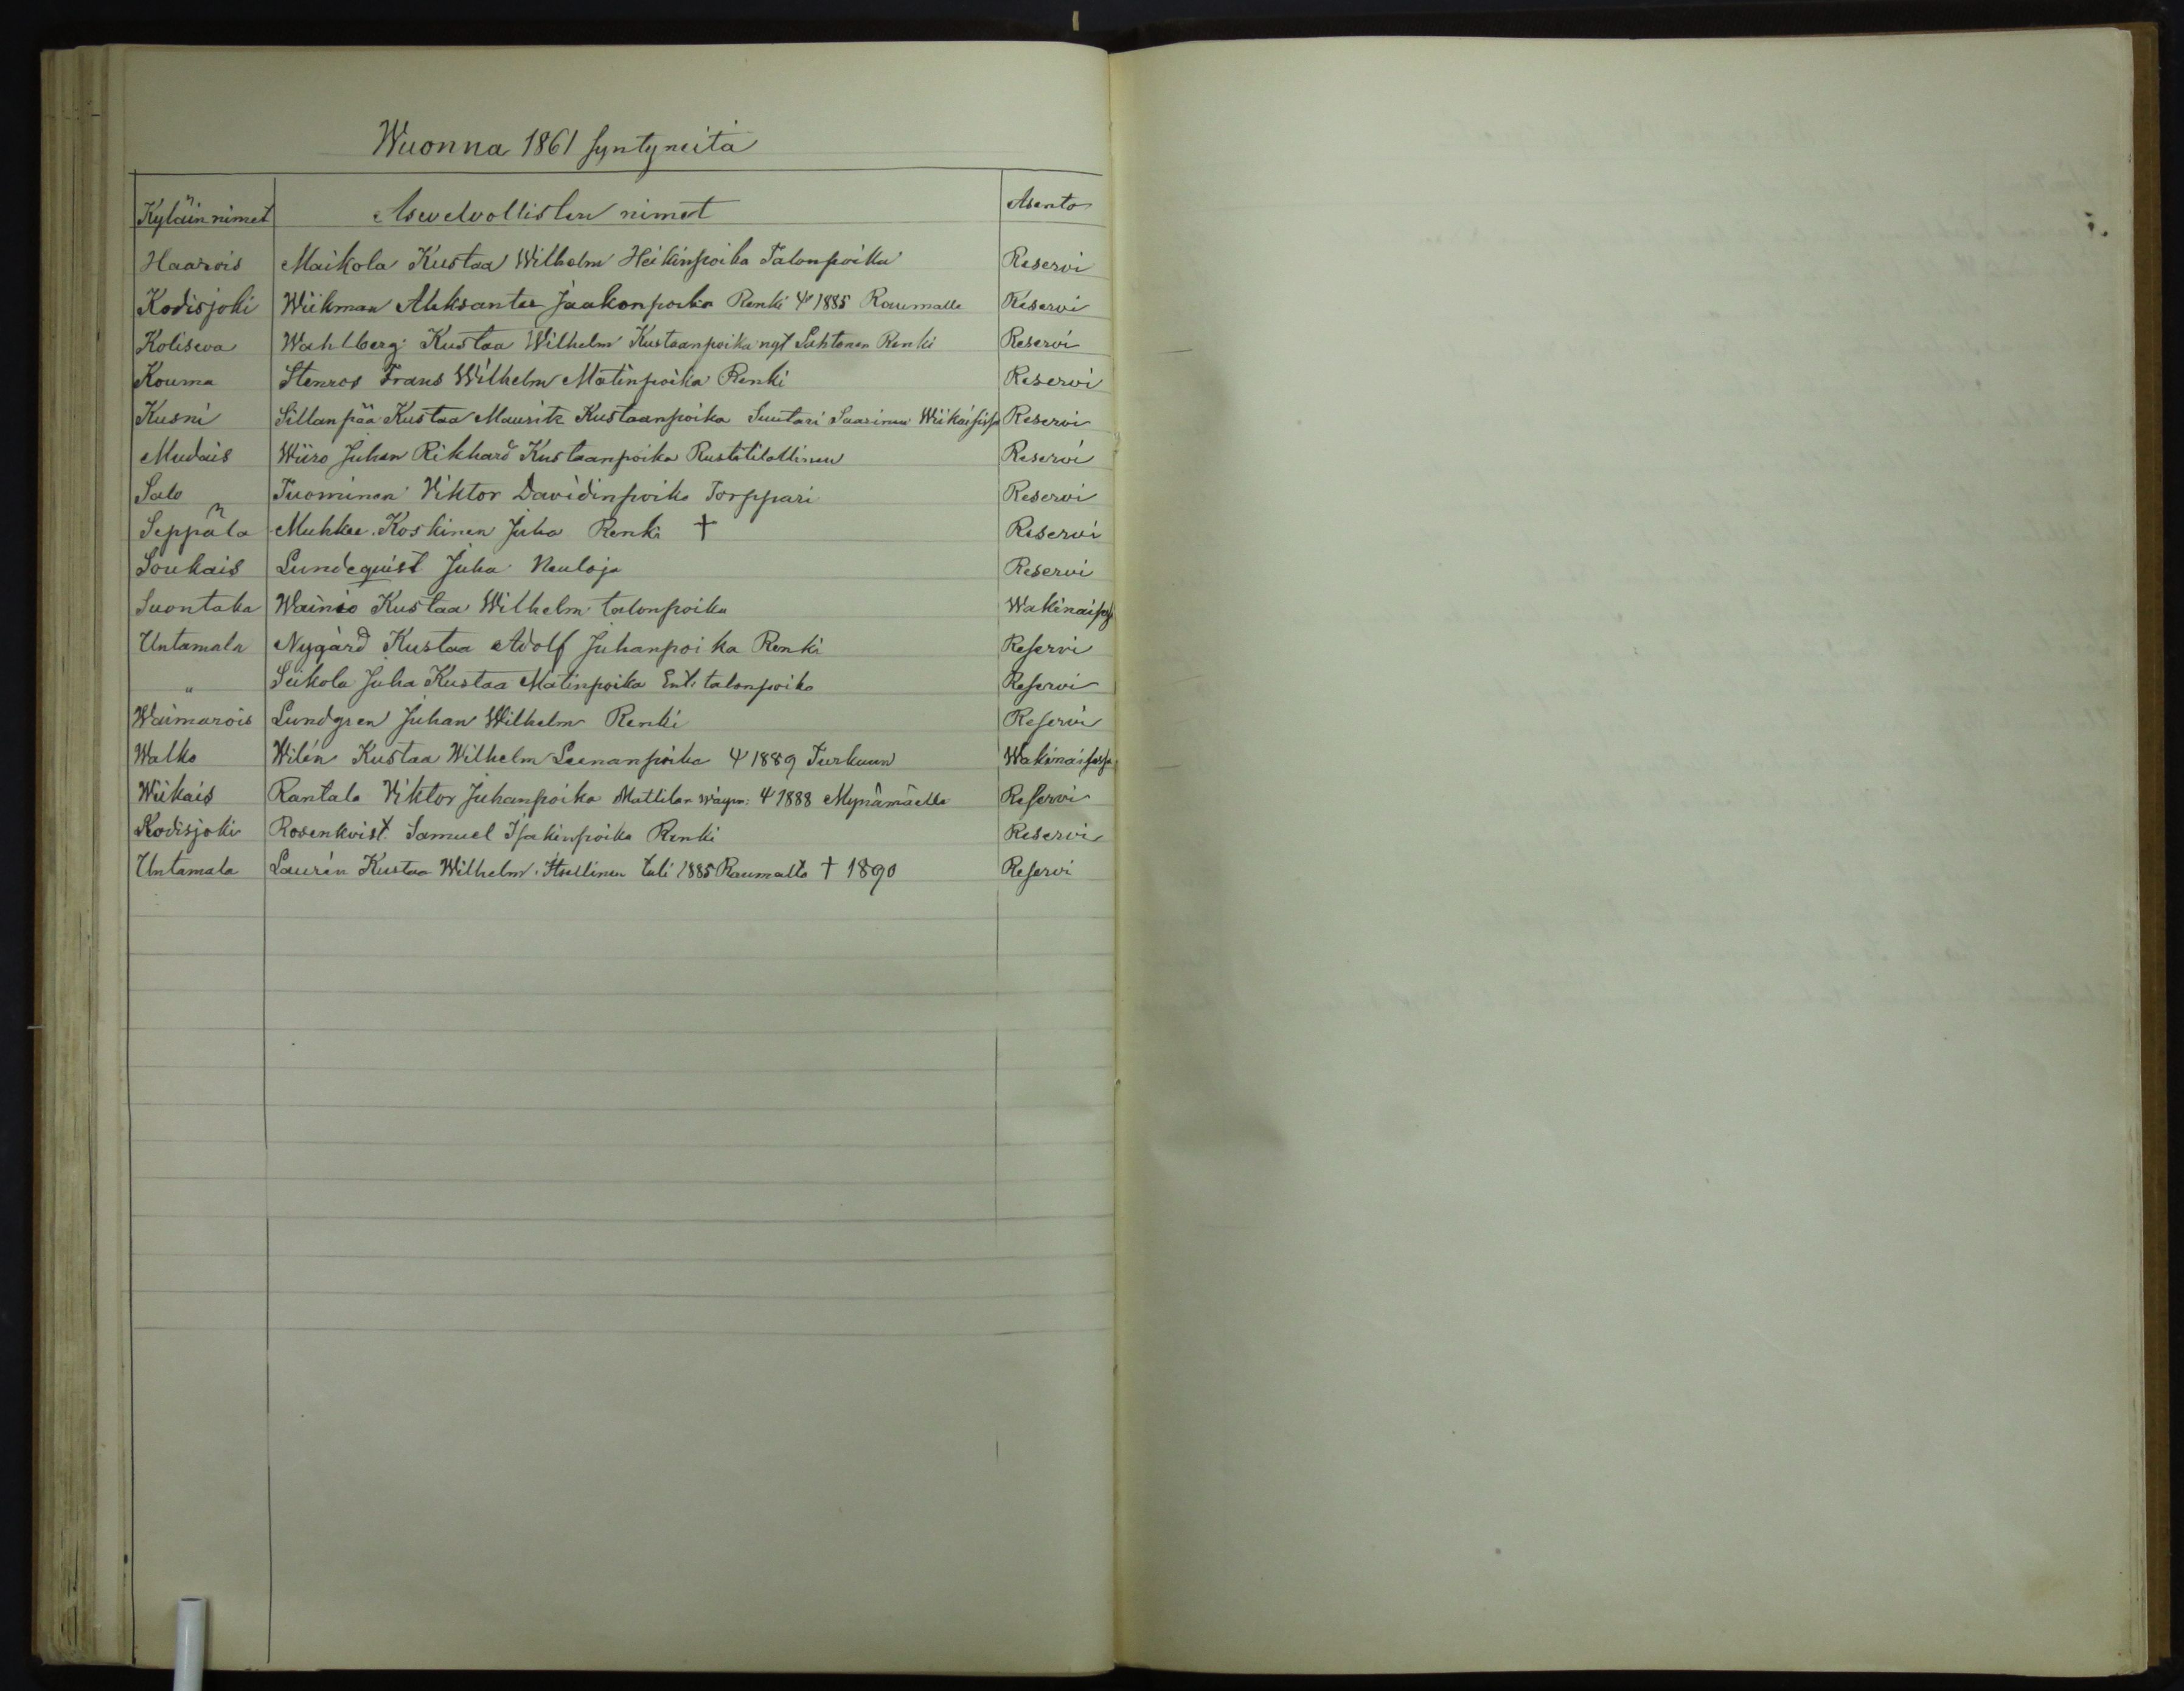 Wuonna 1861 syntyneitä
Kyläin nimet Asevelvollisten nimet Asento
Haarois Maikola Kustaa Wilhelm Heikinpoika Talonpoika Reservi
Kodisjoki Wiikman Aleksanter Jaakonpoika Renki Ψ 1885 Raumalle Reservi
Koliseva Wahlberg Kustaa Wilhelm Kustaanpoika nyt Renki Reservi
Kouma Stenros Frans Wilhelm Matinpoika Renki Reservi
Kusni Sillanpää Kustaa Maurits Kustaanpoika Suutari Saarinen Wiikaisissa Reservi
Mudais Wiiro Juhan Rikhard Kustaanpoika Rustitilallinen Reservi
Salo Tuominen Viktor Davidinpoika Torppari Reservi
Seppälä Koskinen Juha Renki † Reservi
Soukais Lundequist Juha Reservi
Suontaka Wainio Kustaa Wilhelm talonpoika
Untamala Nygård Kustaa Adolf Juhanpoika Renki Reservi
" Seikola Juha Kustaa Matinpoika Ent. talonpoika Reservi
Waimarois Lundgren Juhan Wilhelm Renki Reservi
Walko Wilén Kustaa Wilhelm Leenanpoika Ψ 1889 Turkuun Wakinaisessa
Wiikais Rantala Viktor Juhanpoika Mattilan Ψ 1888 Mynämäelle Reservi
Kodisjoki Rosenkvist Samuel Isakinpoika Renki Reservi
Untamala Laurén Kustaa Wilhelm. Itsellinen tuli 1885 Raumalta † 1890 Reservi